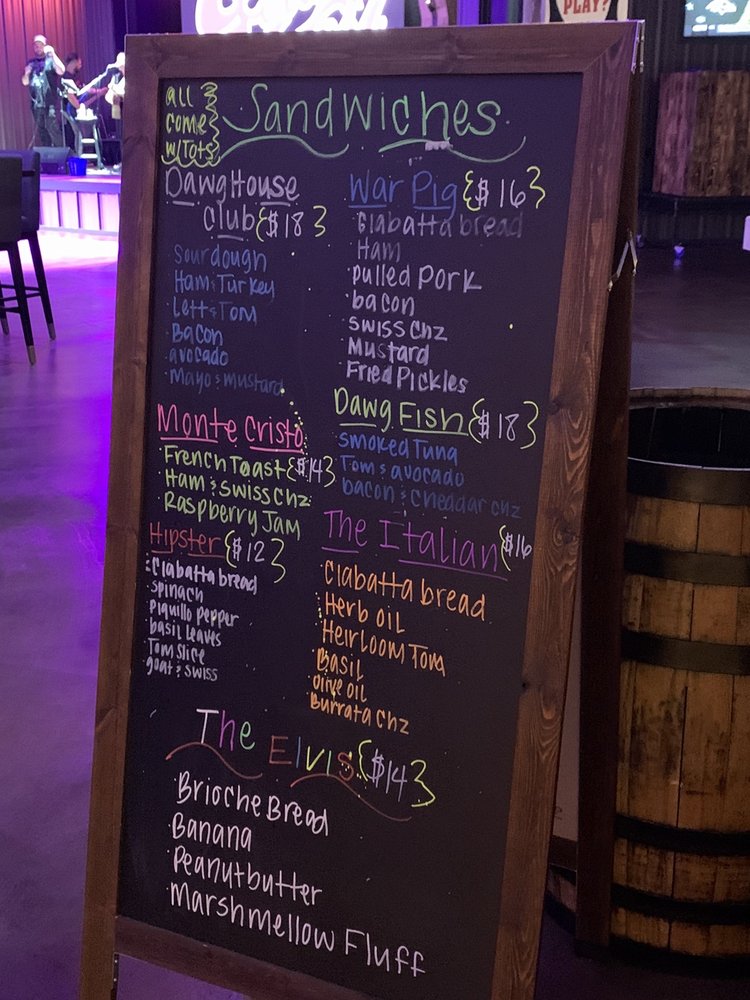 PLAY?
all
come
w/Tots
Sandwiches
DawgHouse
Club {$18}
Sourdough
Ham & Turkey
Lett & Tom
Bacon
avocado
Mayo & mustard
War Pig {$16}
Ciabatta bread
Ham
pulled Pork
bacon
SWISS CHZ
Mustard
Fried Pickles
Monte Cristo
French Toast {$14}
Ham & Swiss chz
Raspberry Jam
Dawg Fish {$18}
smoked Tuna
Tom & avocado
bacon & cheddar chz
Hipster {$12}
Ciabatta bread
spinach
piquillo pepper
basil leaves
Tom slice
goat & swiss
The Italian {$16
Ciabatta bread
Herb oil
Heirloom Tom
Basil
olive oil
Burrata chz
The Elvis {$14}
Brioche Bread
Banana
Peanutbutter
Marshmellow Fluff